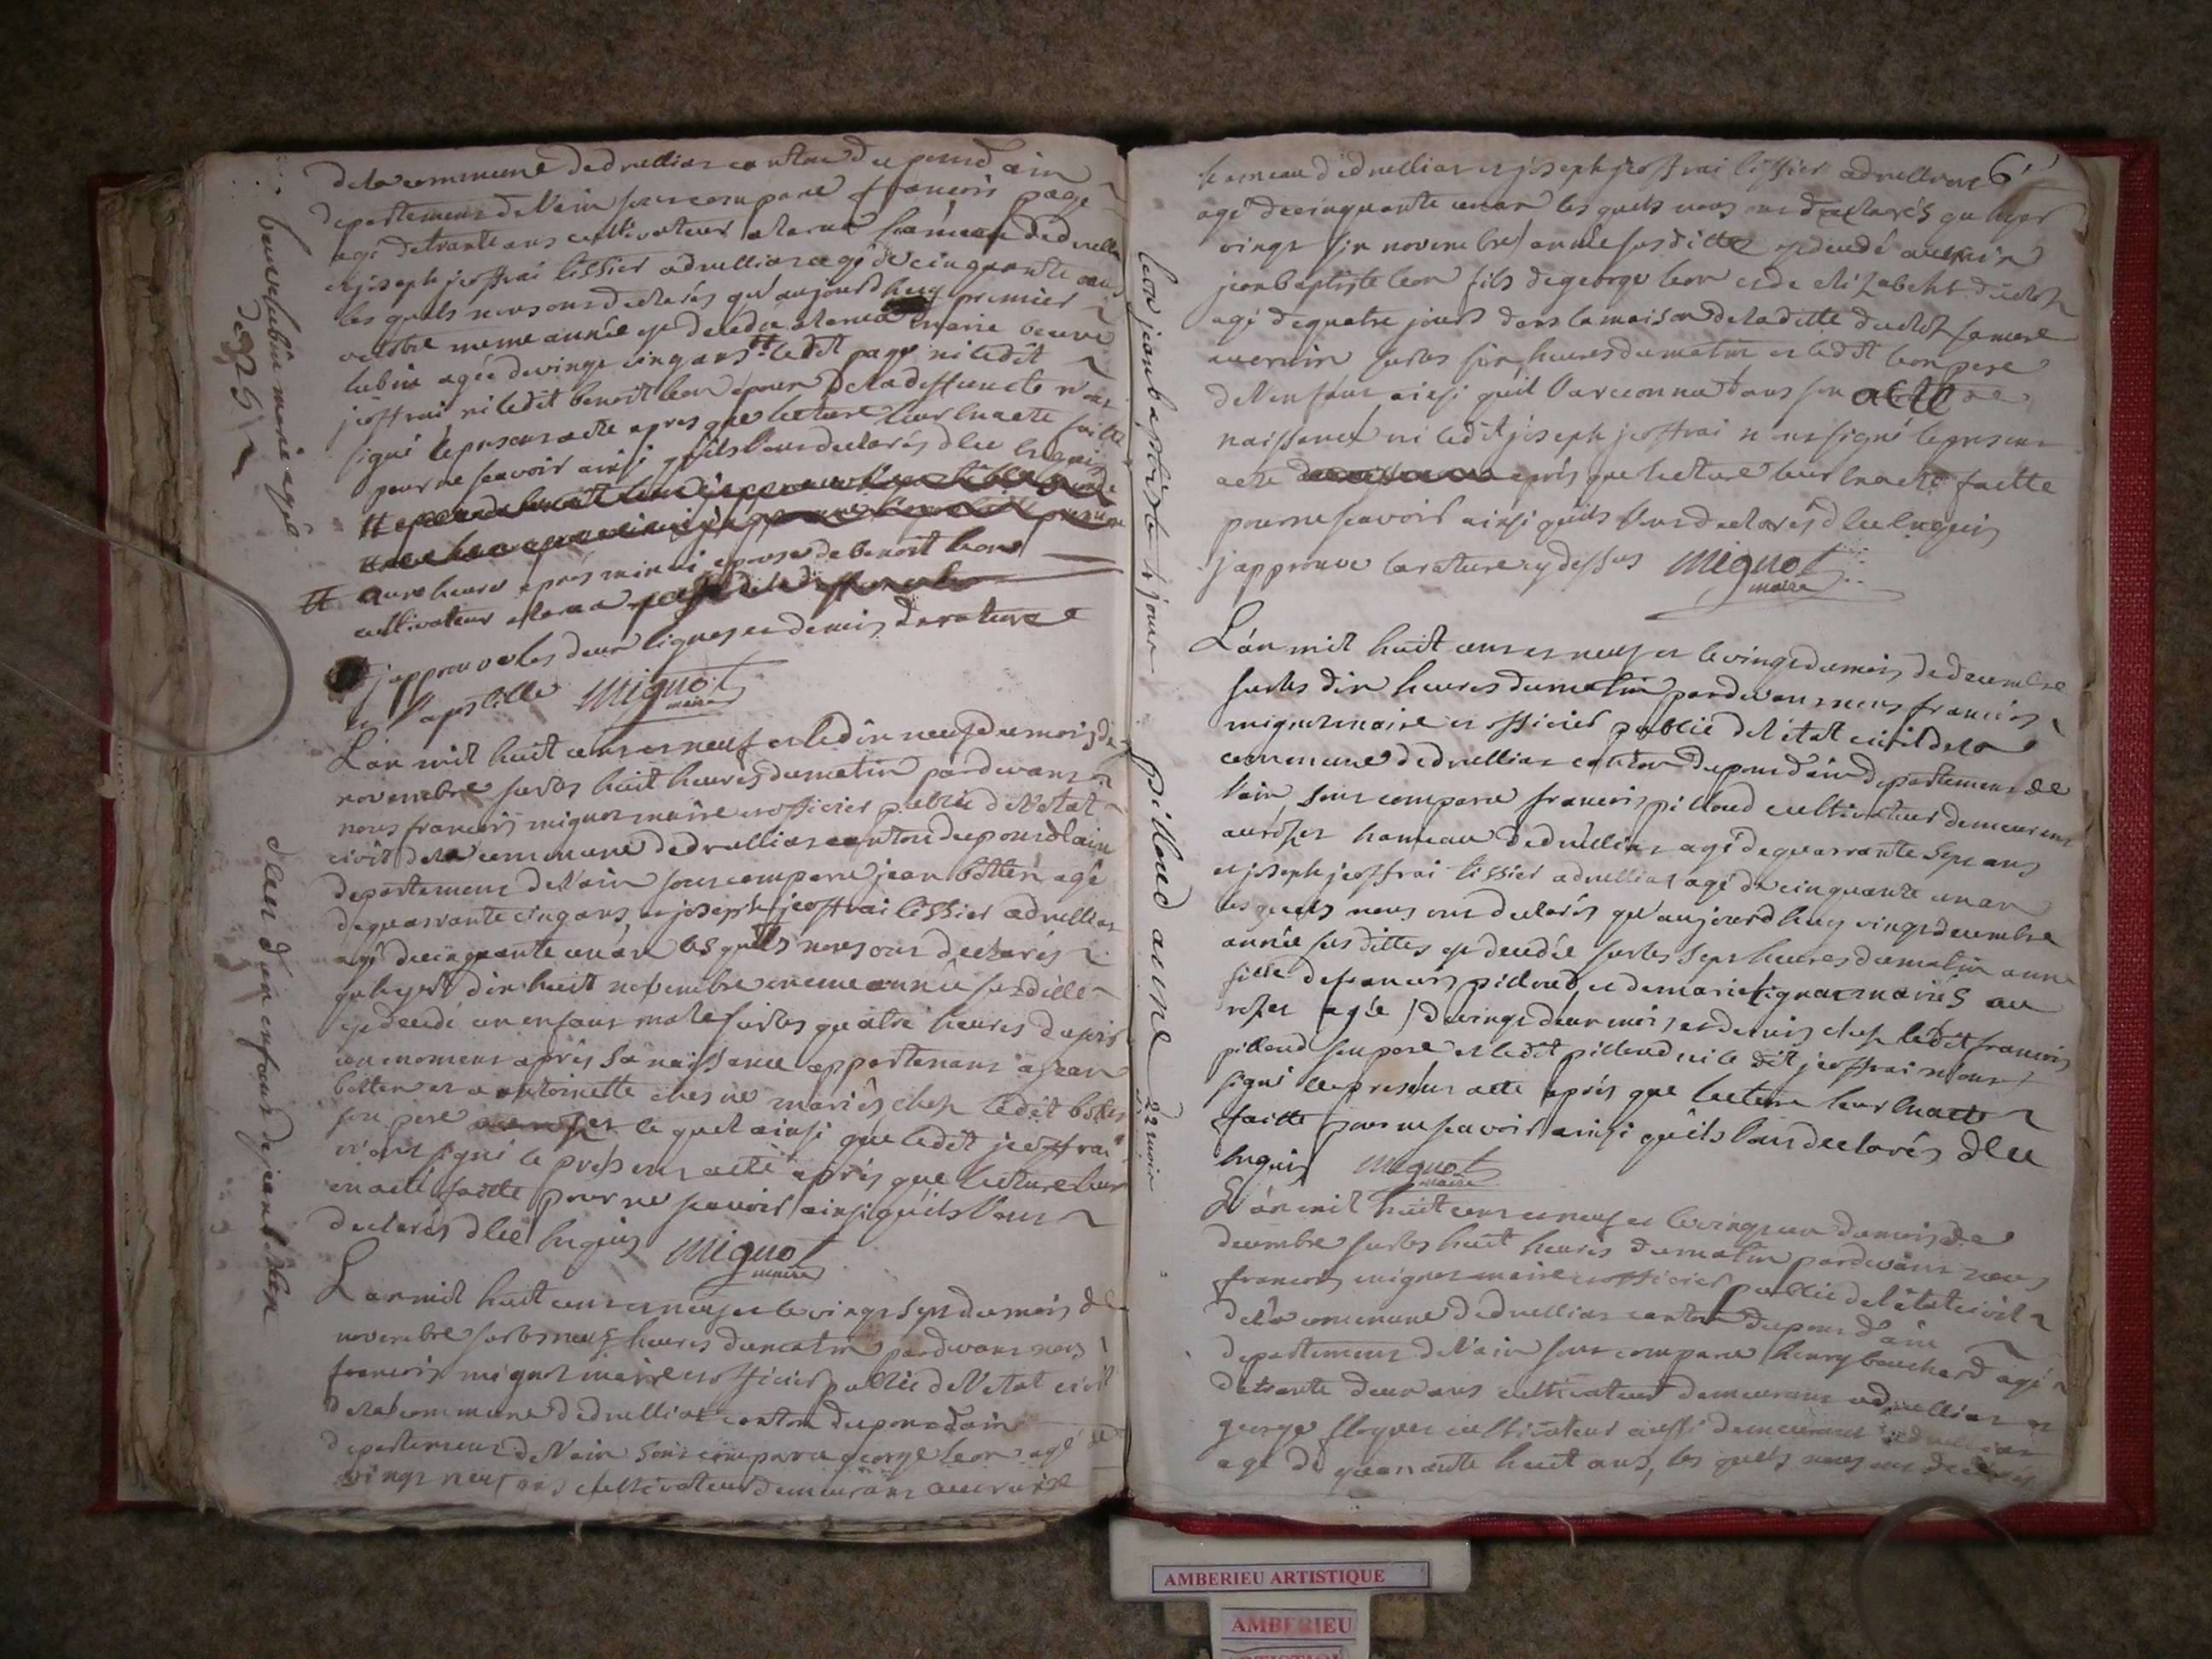 de la commune de druillias canton du pond d'ain
departement de l'ain sont comparu francois page
agé de trante ans cultivateur hameau de druillia
et joseph jeoffrai tissier a druillias agé de cinquante ans
les quels nous ont declarés qu'aujourd huy premier
octobre meme année est decedée marie beuve
lubin agée de vingt cinq ans ledit page ni ledit
jeoffrai ni ledit benoit leon epoux de la deffuncte n'ont
signé le present acte apres que lecture leur en a ete faitte
pour ne scavoir ainsi qu'ils l'ont declarés d'ce enquis
heure après minui epouse de benoit leon
cultivateur
j'approuve les deux lignes et demis de rature
et l'apostille Mignot
maire
L'an mil huit cent et neuf et le dix neuf du mois de
novembre sur les huit heures du matin pardevant
nous francois mignot maire et officier public de l'etat
civil de la commune de druillias canton du pond d'ain
departement de l'ain sont comparu jean botten agé
de quarrante cinq ans, et joseph jeoffrai tissier a druillias
agé de cinquante un an les quels nous ont declarés
qu'hyer dix huit novembre meme année susditte
est decedé un enfant male sur les quatre heures d'apres
un moment après sa naissance appartenant a jean
botten et a antoinette chesne mariés chez ledit botten
son pere le quel ainsi que ledit jeoffrai
n'ont signé le present acte après que lecture leur
en a eté faitte pour ne scavoir ainsi qu'ils l'ont
declarés d'ce enquis Mignot
maire
L'an mil huit cent et neuf et le vingt sept du mois de
novembre sur les neuf heures du matin pardevant nous
francois mignot maire et officier public de l'etat civil
de la commune de druillias canton du pond d'ain
departement de l'ain sont comparu george leon agé de
vingt neuf ans cultivateur demeurant au
beuve lubin marie agée
de 25
d'un enfant de jean botten
6
hameau de druillias et joseph jeoffrai tissier a druillias
agé de cinquante un an les quels nous ont declarés qu'hyer
vingt six novembre année susditte est decedé
jean baptiste leon fils de george leon et de elizabeht duclos
agé de quatre jours dans la maison de la ditte duclos sa mere
sur les six heures du matin et ledit leon pere
de l'enfant ainsi qu'il l'a reconnu dans son acte de
naissance ni ledit joseph jeoffrai n'ont signé le present
acte après que lecture leur en a eté faitte
pour ne scavoir ainsi qu'ils l'ont declarés d'ce enquis
j'approuve la rature cy dessus Mignot
maire
L'an mil huit cent et neuf et le vingt du mois de decembre
sur les dix heures du matin pardevant nous francois
mignot maire et officier public de l'état civil de la
commune de druillias canton du pond d'ain departement de
l'ain, sont comparu francois pilloud cultivateur demeurant
au rozet hameau de druillias agé de quarrante sept ans
et joseph jeoffrai tissier a druillias agé de cinquante un an
les quels nous ont declarés qu'aujourd huy vingt decembre
année susdittes est decedée sur les sept heures du matin anne
fille de francois pilloud, et de marie mariés au
rozet agée de vingt deux mois et demis chez ledit francois
pilloud son pere et ledit pilloud ni le dit jeoffrai n'ont
signé le present acte après que lecture leur en a eté
faitte pour ne scavoir ainsi qu'ils l'ont declarés d'ce
enquis Mignot
maire
L'an mil huit cent et neuf et le vingt un du mois de
decembre sur les huit heures du matin pardevant nous
francois mignot maire et officier public de l'état civil
de la commune de druillias canton du pond d'ain
departement de l'ain sont comparu henry bouchard agé
de trante deux ans cultivateur demeurant a druillias et
george cultivateur aussi demeurant a druillias
agé de quarrante huit ans, les quels nous ont declarés
leon jean baptiste 4 jour
pilloud anne 22 mois
AMBERIEU ARTISTIQUE
AMBERIEU
ARTISTIQUE